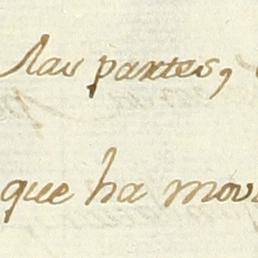 las partes,
que ha mov